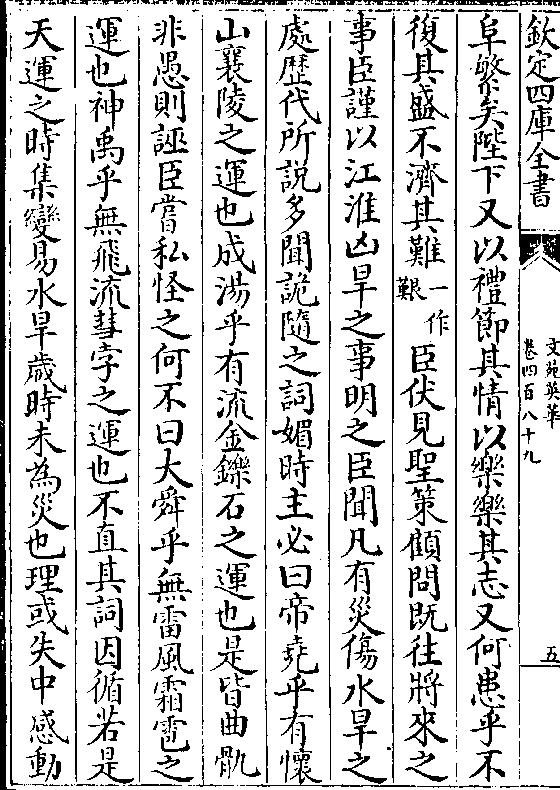 欽定四庫全書
文苑英華
卷四百八十九
五
阜繁矣陛下又以禮節其情以樂樂其志又何患乎不
復其盛不濟其難一作艱臣伏見聖策顧問既往將來之
事臣謹以江淮凶旱之事明之臣聞凡有災傷水旱之
處歴代所説多聞詭隨之詞媚時主必曰帝堯乎有懷
山襄陵之運也成湯乎有流金鑠石之運也是皆曲骫
非愚則誣臣嘗私怪之何不曰大舜乎無雷風霜雹之
運也神禹乎無飛流彗孛之運也不直其詞因循若是
天運之時集變易水旱歳時未為災也理或失中感動